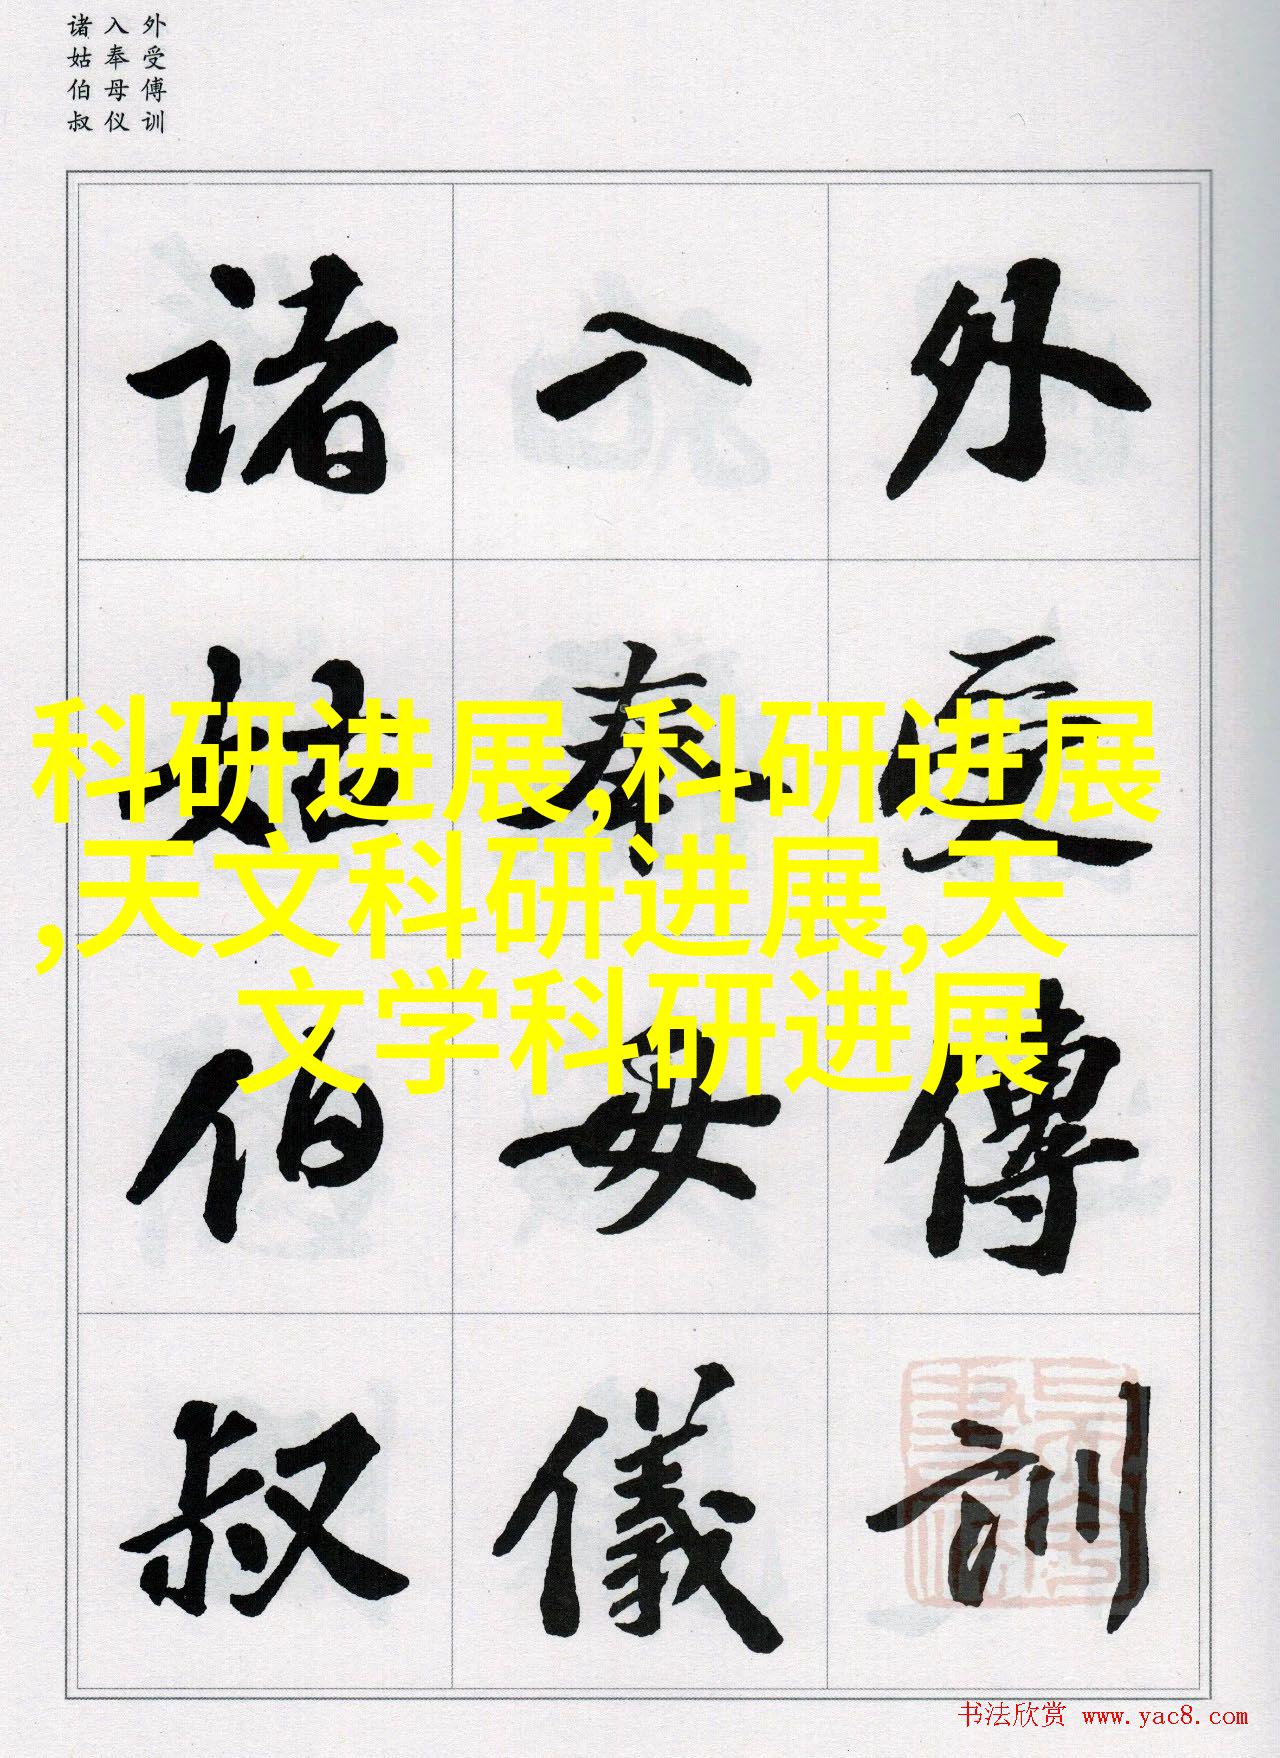 外受傅训
入奉母仪
诸姑伯叔
外受傅訓
入奉母儀
诸姑伯叔
科研进展,科研进展
,天文科研进展,天
文学科研进展
书法欣赏 www.yac8.com